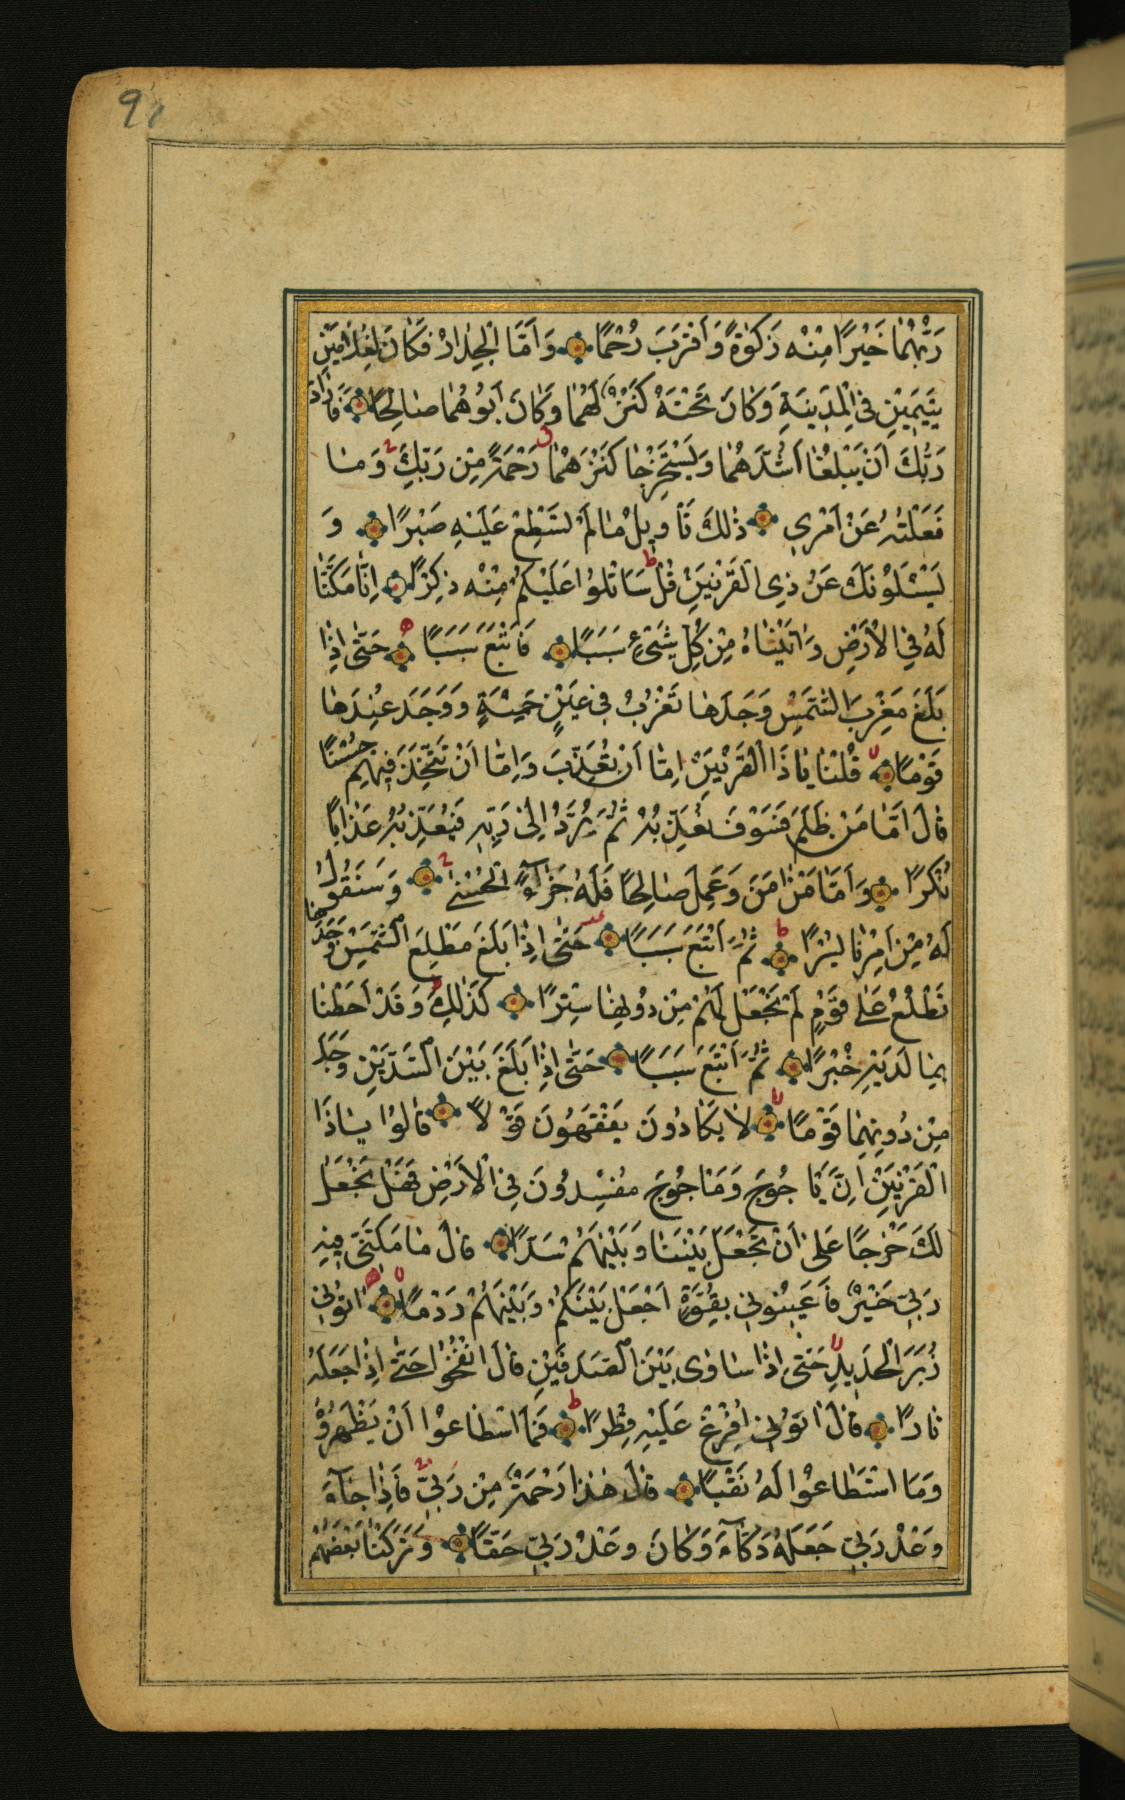 91
رَبُّهُمٰا خَيْرًا مِنْهُ زَكٰوةً وَاَقْرَبَ رُحْمًا وَاَمَّا الْجِدٰارُ فَكٰانَ لِغُلٰامَيْنِ
يَتٖيمَيْنِ فِى الْمَدٖينَةِ وَكٰانَ تَحْتَهُ كَنْزٌ لَهُمٰا وَكٰانَ اَبُوهُمٰا صٰالِحًا فَاَرٰادَ
رَبُّكَ اَنْ يَبْلُغٰا اَشُدَّهُمٰا وَيَسْتَخْرِجٰا كَنْزَهُمٰا رَحْمَةً مِنْ رَبِّكَ وَمٰا
فَعَلْتُهُ عَنْ اَمْرٖى ذٰلِكَ تَاْوٖيلُ مٰا لَمْ تَسْطِعْ عَلَيْهِ صَبْرًا وَ
يَسْئَلُونَكَ عَنْ ذِى الْقَرْنَيْنِ قُلْ سَاَتْلُوا عَلَيْكُمْ مِنْهُ ذِكْرًا اِنّٰا مَكَّنّٰا
لَهُ فِى الْاَرْضِ وَاٰتَيْنٰاهُ مِنْ كُلِّ شَىْءٍ سَبَبًا فَاَتْبَعَ سَبَبًا حَتّٰى اِذٰا
بَلَغَ مَغْرِبَ الشَّمْسِ وَجَدَهٰا تَغْرُبُ فٖى عَيْنٍ حَمِئَةٍ وَوَجَدَ عِنْدَهٰا
قَوْمًا قُلْنٰا يٰا ذَا الْقَرْنَيْنِ اِمّٰا اَنْ تُعَذِّبَ وَاِمّٰا اَنْ تَتَّخِذَ فٖيهِمْ حُسْنًا
قٰالَ اَمّٰا مَنْ ظَلَمَ فَسَوْفَ نُعَذِّبُهُ ثُمَّ يُرَدُّ اِلٰى رَبِّهٖ فَيُعَذِّبُهُ عَذٰابًا
نُكْرًا وَاَمّٰا مَنْ اٰمَنَ وَعَمِلَ صٰالِحًا فَلَهُ جَزٰاءً الْحُسْنٰى وَسَنَقُولُ
لَهُ مِنْ اَمْرِنٰا يُسْرًا ثُمَّ اَتْبَعَ سَبَبًا حَتّٰى اِذٰا بَلَغَ مَطْلِعَ الشَّمْسِ وَجَدَهٰا
تَطْلُعُ عَلٰى قَوْمٍ لَمْ نَجْعَلْ لَهُمْ مِنْ دُونِهٰا سِتْرًا كَذٰلِكَ وَقَدْ اَحَطْنٰا
بِمٰا لَدَيْهِ خُبْرًا ثُمَّ اَتْبَعَ سَبَبًا حَتّٰى اِذٰا بَلَغَ بَيْنَ السَّدَّيْنِ وَجَدَ
مِنْ دُونِهِمٰا قَوْمًا لٰا يَكٰادُونَ يَفْقَهُونَ قَوْلًا قٰالُوا يٰا ذَا
الْقَرْنَيْنِ اِنَّ يَاْجُوجَ وَمَاْجُوجَ مُفْسِدُونَ فِى الْاَرْضِ فَهَلْ نَجْعَلُ
لَكَ خَرْجًا عَلٰى اَنْ تَجْعَلَ بَيْنَنٰا وَبَيْنَهُمْ سَدًّا قٰالَ مٰا مَكَّنّٖى فٖيهِ
رَبّٖى خَيْرٌ فَاَعٖينُونٖى بِقُوَّةٍ اَجْعَلْ بَيْنَكُمْ وَبَيْنَهُمْ رَدْمًا اٰتُونٖى
زُبَرَ الْحَدٖيدِ حَتّٰى اِذٰا سٰاوٰى بَيْنَ الصَّدَفَيْنِ قٰالَ انْفُخُوا حَتّٰى اِذٰا جَعَلَهُ
نٰارًا قٰالَ اٰتُونٖى اُفْرِغْ عَلَيْهِ قِطْرًا فَمَا اسْطٰاعُوا اَنْ يَظْهَرُوهُ
وَمَا اسْتَطٰاعُوا لَهُ نَقْبًا قٰالَ هٰذٰا رَحْمَةٌ مِنْ رَبّٖى فَاِذٰا جٰاءَ
وَعْدُ رَبّٖى جَعَلَهُ دَكّٰاءَ وَكٰانَ وَعْدُ رَبّٖى حَقًّا وَتَرَكْنٰا بَعْضَهُمْ